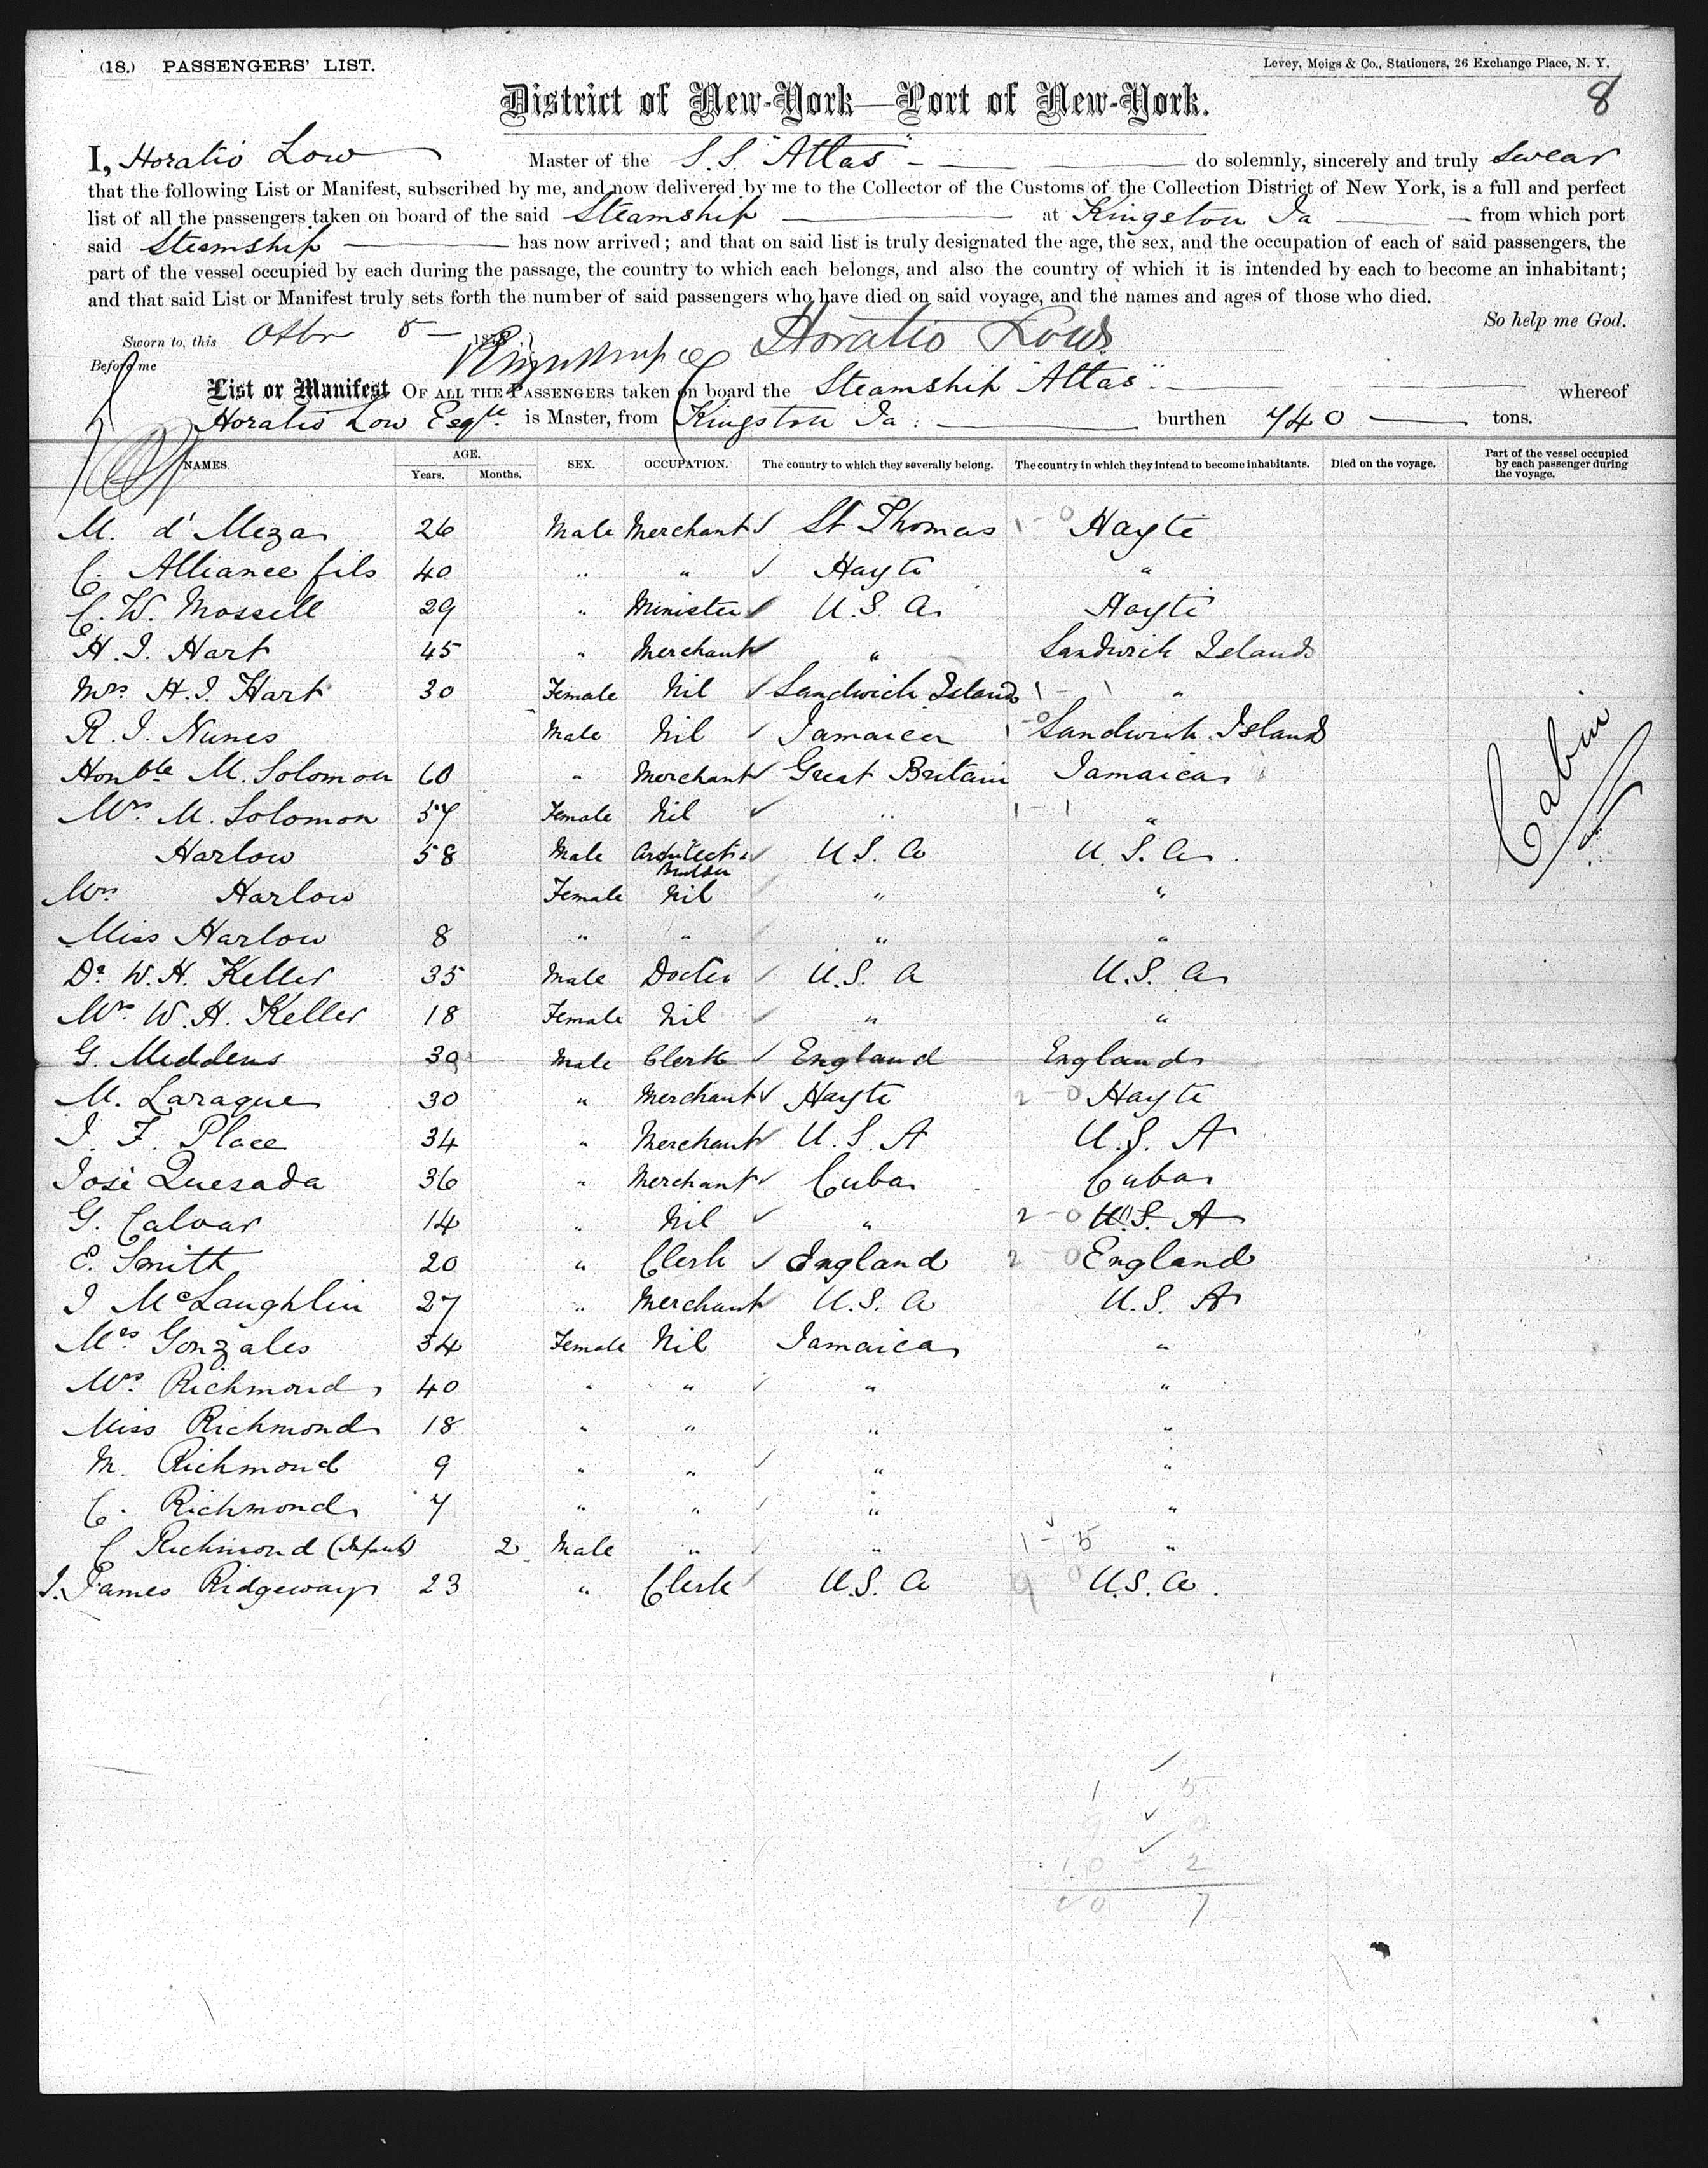 (18.) PASSENGERS' LIST.
Levey, Meigs & Co., Stationers, 26 Exchange Place, N. Y.
8
District of New-York—Port of New-York.
I, Horatio Low Master of the S.S. "Atlas" do solemnly, sincerely and truly swear
that the following List or Manifest, subscribed by me, and now delivered by me to the Collector of the Customs of the Collection District of New York, is a full and perfect
list of all the passengers taken on board of the said Steamship at Kingston Ja from which port
said Steamship has now arrived; and that on said list is truly designated the age, the sex, and the occupation of each of said passengers, the
part of the vessel occupied by each during the passage, the country to which each belongs, and also the country of which it is intended by each to become an inhabitant;
and that said List or Manifest truly sets forth the number of said passengers who have died on said voyage, and the names and ages of those who died.
So help me God.
Sworn to, this 5 187
Horatio Low
Before me
List or Manifest OF ALL THE PASSENGERS taken on board the Steamship "Atlas" whereof
Horatio Low Esqre. is Master, from Kingston Ja: burthen 740 tons.
NAMES. AGE. Years. Months. SEX. OCCUPATION. The country to which they severally belong. The country in which they intend to become inhabitants. Died on the voyage. Part of the vessel occupied by each passenger during the voyage.
M. d'Meza 26 Male Merchant St Thomas 1-0 Hayti
C. Alliance fils 40 " " Hayti "
C. W. Mossell 29 " Minister U. S. A. Hayti
H. I. Hart 45 " Merchant " Sandwich Islands
Mrs H. I. Hart 30 Female Nil Sandwich Islands 1-1 "
R. I. Nunes Male Nil Jamaica 1-0 Sandwich Islands
Honble M. Solomon 60 " Merchant Great Britain Jamaica
Mrs. M. Solomon 57 Female Nil " 1-1 "
Harlow 58 Male Architect & Builder U.S. A U. S. A.
Mrs Harlow Female Nil " "
Miss Harlow 8 " " " "
Dr W. H. Keller 35 Male Doctor U. S. A U. S. A
Mrs. W. H. Keller 18 Female Nil " "
G. Meddens 30 Male Clerk England England
M. Laraque 30 " Merchant Hayti 2-0 Hayti
J. F. Place 34 " Merchant U. S. A U. S. A
José Quesada 36 " Merchant Cuba Cuba
G. Calvar 14 " Nil " 2-0 U. S. A
E. Smith 20 " Clerk England 2-0 England
J McLaughlin 27 " Merchant U. S. A U. S. A
Mrs Gonzales 34 Female Nil Jamaica "
Mrs. Richmond 40 " " " "
Miss Richmond 18 " " " "
M. Richmond 9 " " " "
C. Richmond 7 " " " "
C Richmond (Infant) 2 Male " " 1-5 "
J. James Ridgeway 23 " Clerk U. S. A 9 0 U. S. A.
Cabin
1 5
9 0
10 - 2
20 7